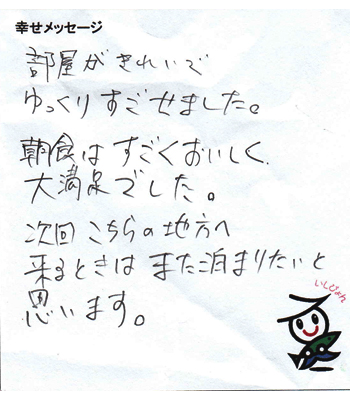 幸せメッセージ
部屋がきれいで
ゆっくりすごせました。
朝食はすごくおいしく、
大満足でした。
次回こちらの地方へ
来るときはまた泊まりたいと
思います。
いしぴょん